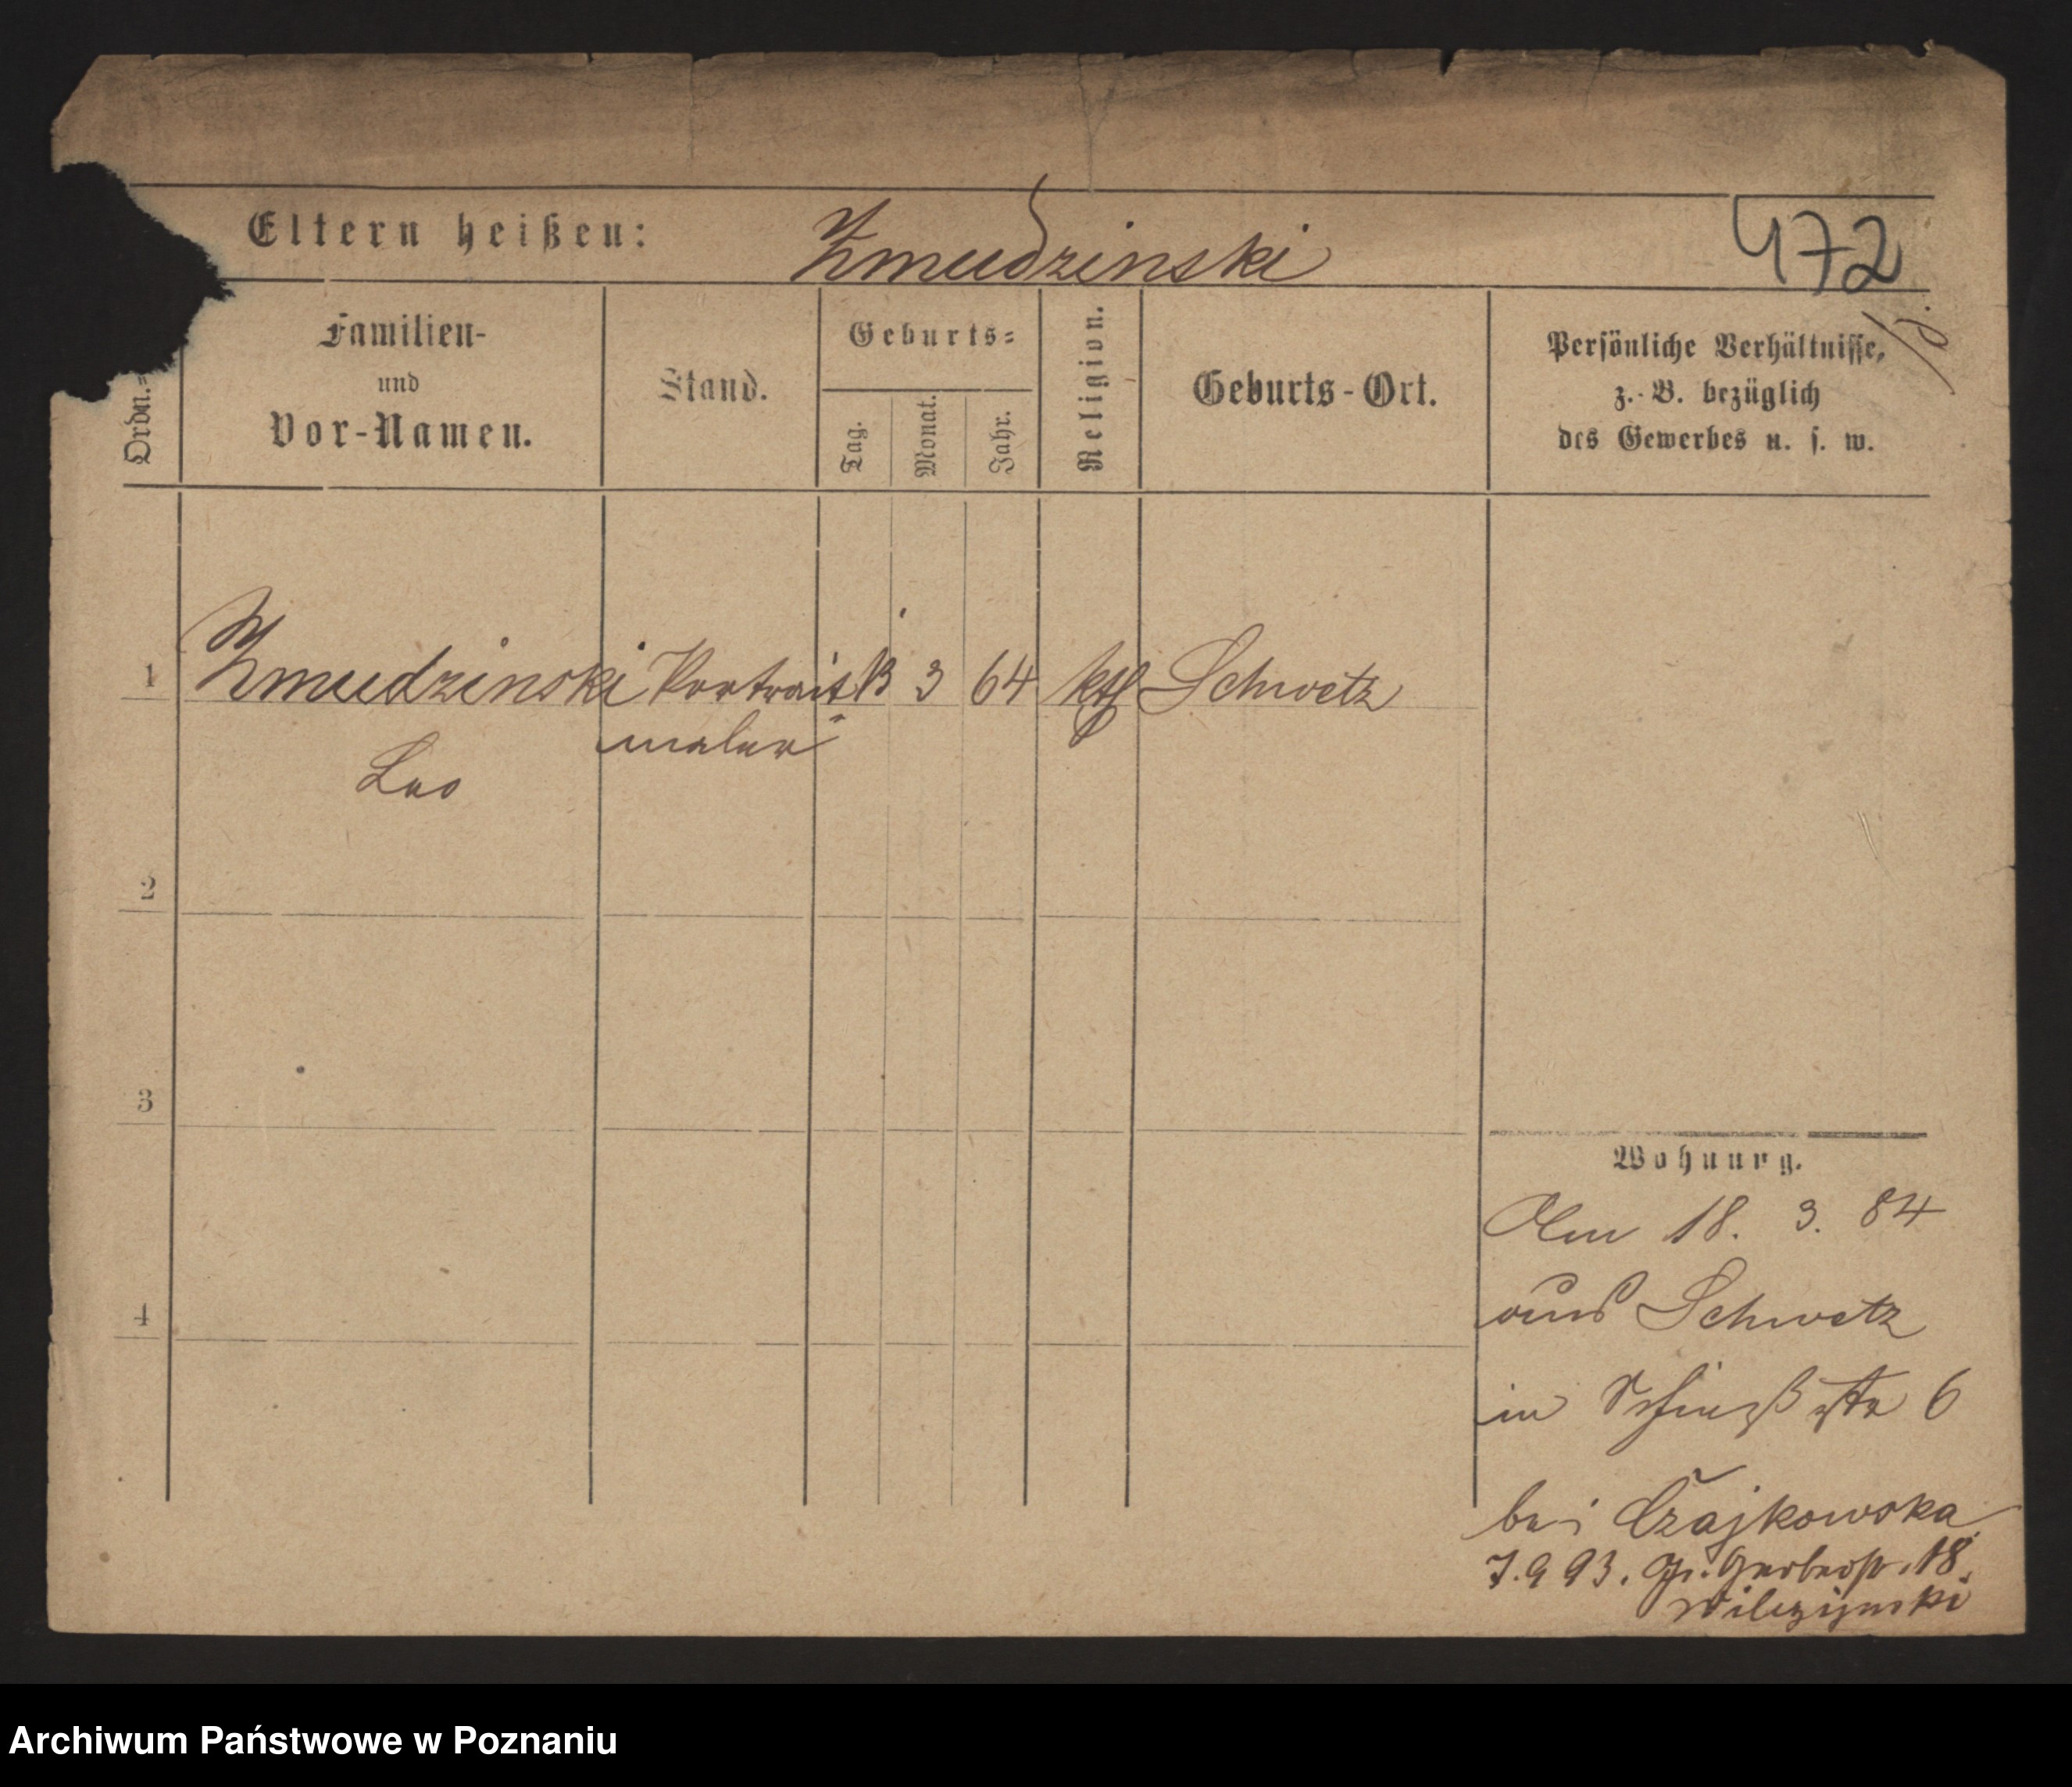 Eltern heißen: Zmudzinski 472
Ordn.=
Familien-
und
Vor-Namen.
Stand.
Geburts=
Tag.
Monat.
Jahr.
Religion.
Geburts-Ort.
Persönliche Verhältnisse,
z. B. bezüglich
des Gewerbes u. s. w.
1 Zmudzinski Portrait 13 3 64 kth Schwetz
maler
Leo
2
3
4
Wohnung.
Am 18. 3. 84
aus Schwetz
in 6
bei Czajkowska
7. 9 93. Gr. Gerberstr. 18.
Wilczynski
Archiwum Państwowe w Poznaniu